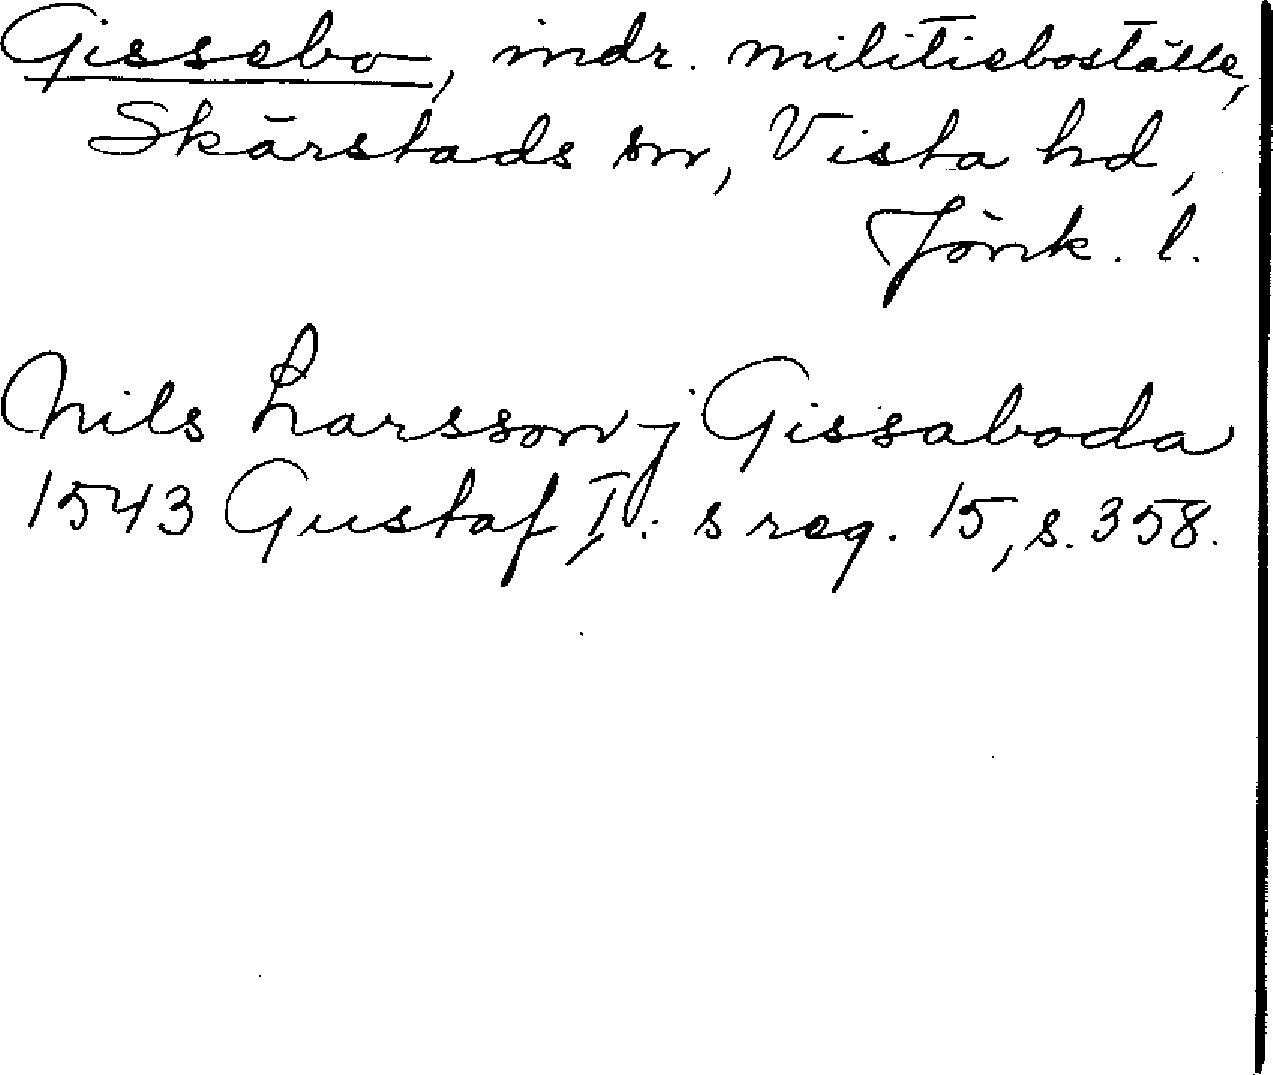 Gissebo, indr. militieboställe,
Skärstads sn, Vista hd,
Jönk. l.
Nils Larsson j Gissaboda
1543 Gustaf I: s reg. 15, s. 358.